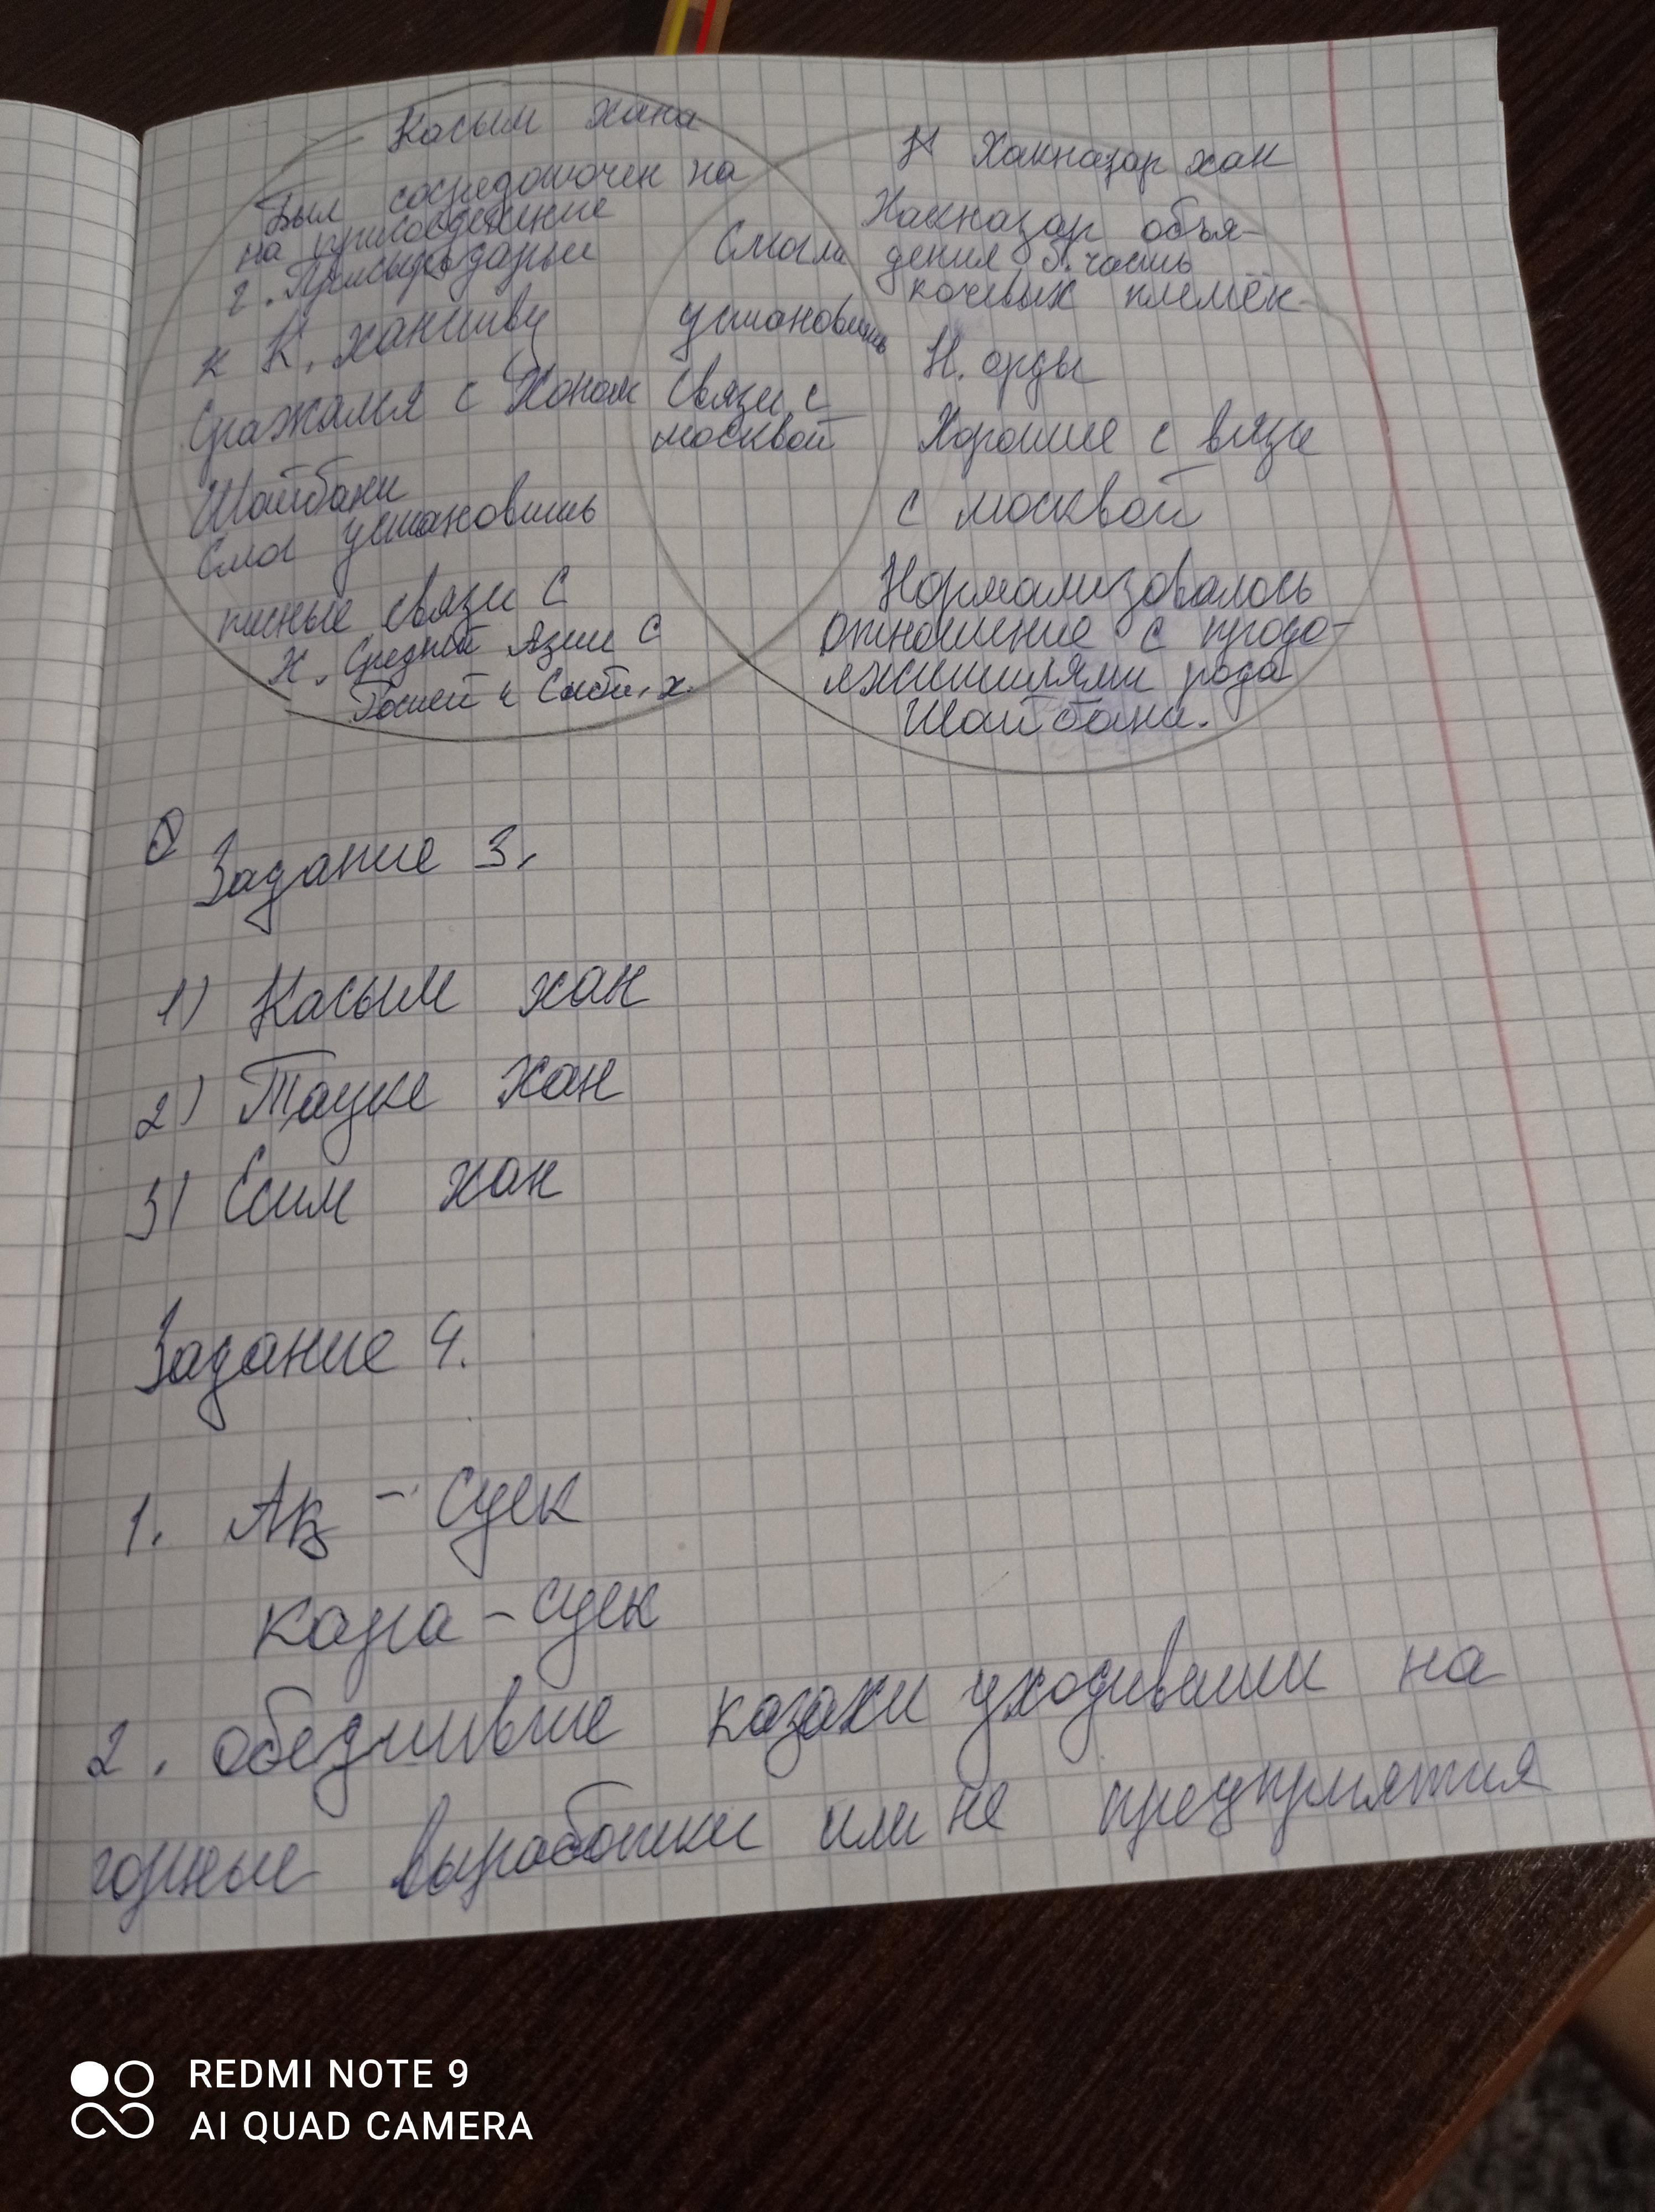 Касым хана
Был сосредоточен на
на присоедение
г. Присырдарьи
к К. ханству
Сражался с Ханом
Шайбани
Смог установить
тисные связи с
х. Средней Азии с
и Сиби. х.
Смогли
установить
Связи с
москвой
Хакназар хан
Хакназар объя-
дения б. часть
кочевых племён
Н. орды
Хорошие с вязи
с москвой
Нормализовалось
отношение с продо-
лжителями рода
Шайбана.
Задание 3.
1) Касым хан
2) Тауке хан
3) Есим хан
Задание 4.
1. Ақ - Суек
Кара - суек
2. обеднившие казахи уходившии на
горные выработки или не предприятия
REDMI NOTE 9
AI QUAD CAMERA